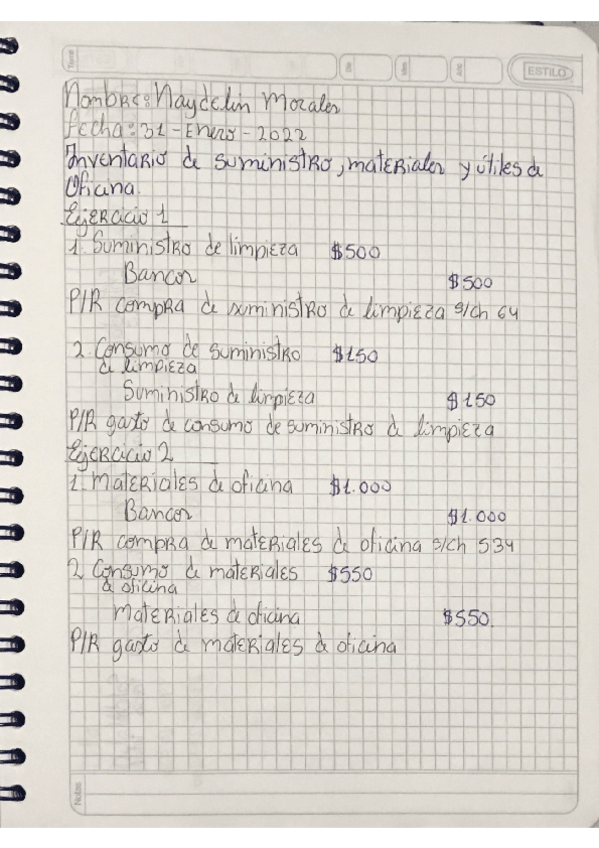 Tema
Día
Mes
Año
ESTILO
Nombre: Naydelin Morales
Fecha: 31-Enero-2022
Inventario de suministro, materiales y útiles de
Oficina.
Ejercicio 1
1. Suministro de limpieza $500
Bancos $500
P/R compra de suministro de limpieza s/ch 64
2. Consumo de suministro $150
de limpieza
Suministro de limpieza $150
P/R gasto de consumo de suministro de limpieza
Ejercicio 2
1. Materiales de oficina $1.000
Bancos $1.000
P/R compra de materiales de oficina s/ch 534
2. Consumo de materiales $550
de oficina
Materiales de oficina $550.
P/R gasto de materiales de oficina
Notas